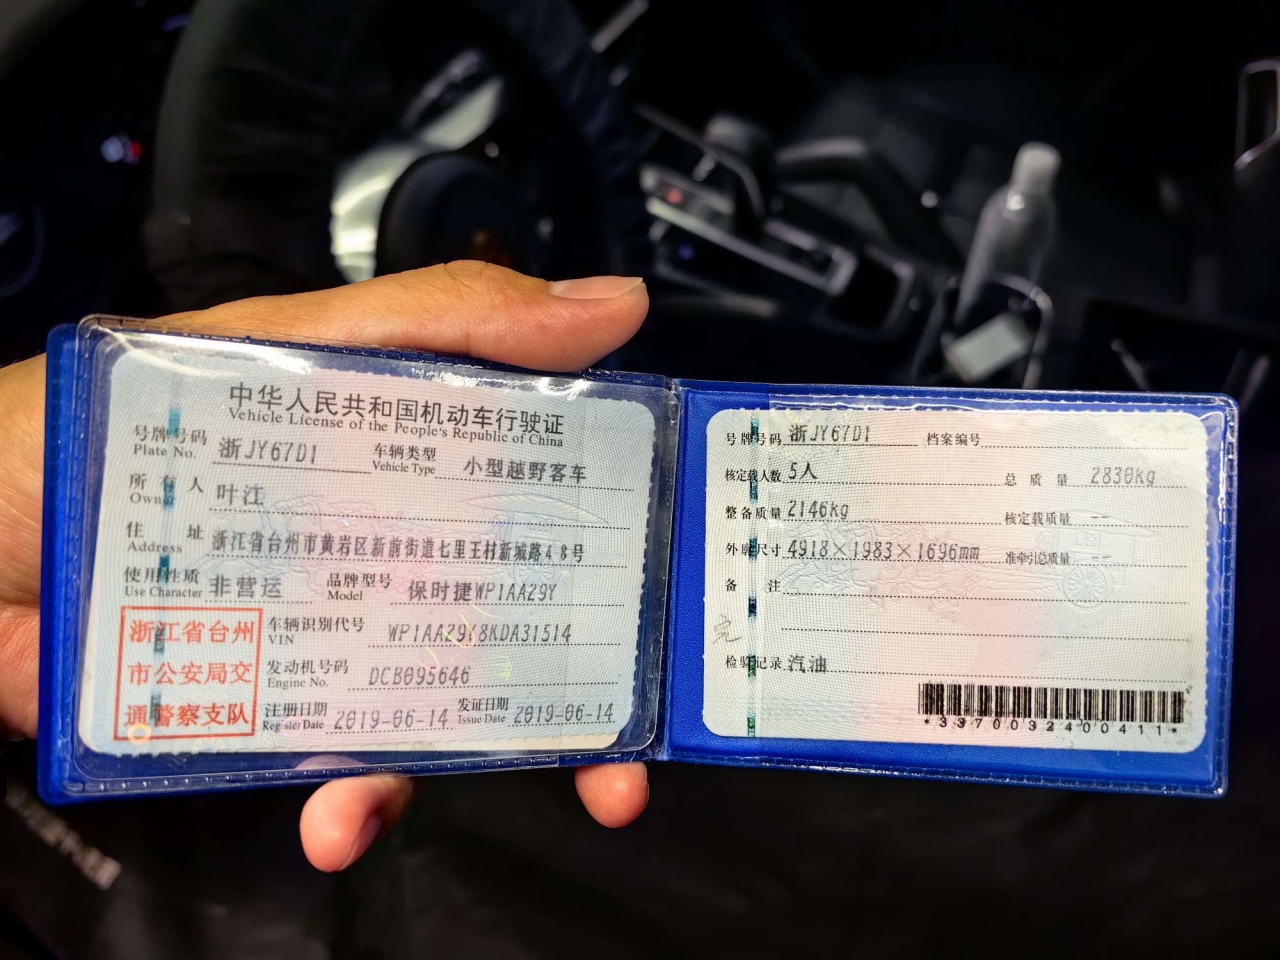 中华人民共和国机动车行驶证
Vehicle License of the People's Republic of China
号牌号码 浙JY67D1 车辆类型 小型越野客车
Plate No. Vehicle Type
所有人 叶江
Owner
住址 浙江省台州市黄岩区新前街道七里王村新城路48号
Address
使用性质 非营运 品牌型号 保时捷WP1AA29Y
Use Character Model
浙江省台州
市公安局交
通警察支队
车辆识别代号 WP1AA29Y8KDA31514
VIN
发动机号码 DCB095646
Engine No.
注册日期 2019-06-14 发证日期 2019-06-14
Register Date Issue Date
号牌号码 浙JY67D1 档案编号
核定载人数 5人 总质量 2830kg
整备质量 2146kg 核定载质量 --
外廓尺寸 4918×1983×1696mm 准牵引总质量 --
备注
检验记录 汽油
*3370032400411*